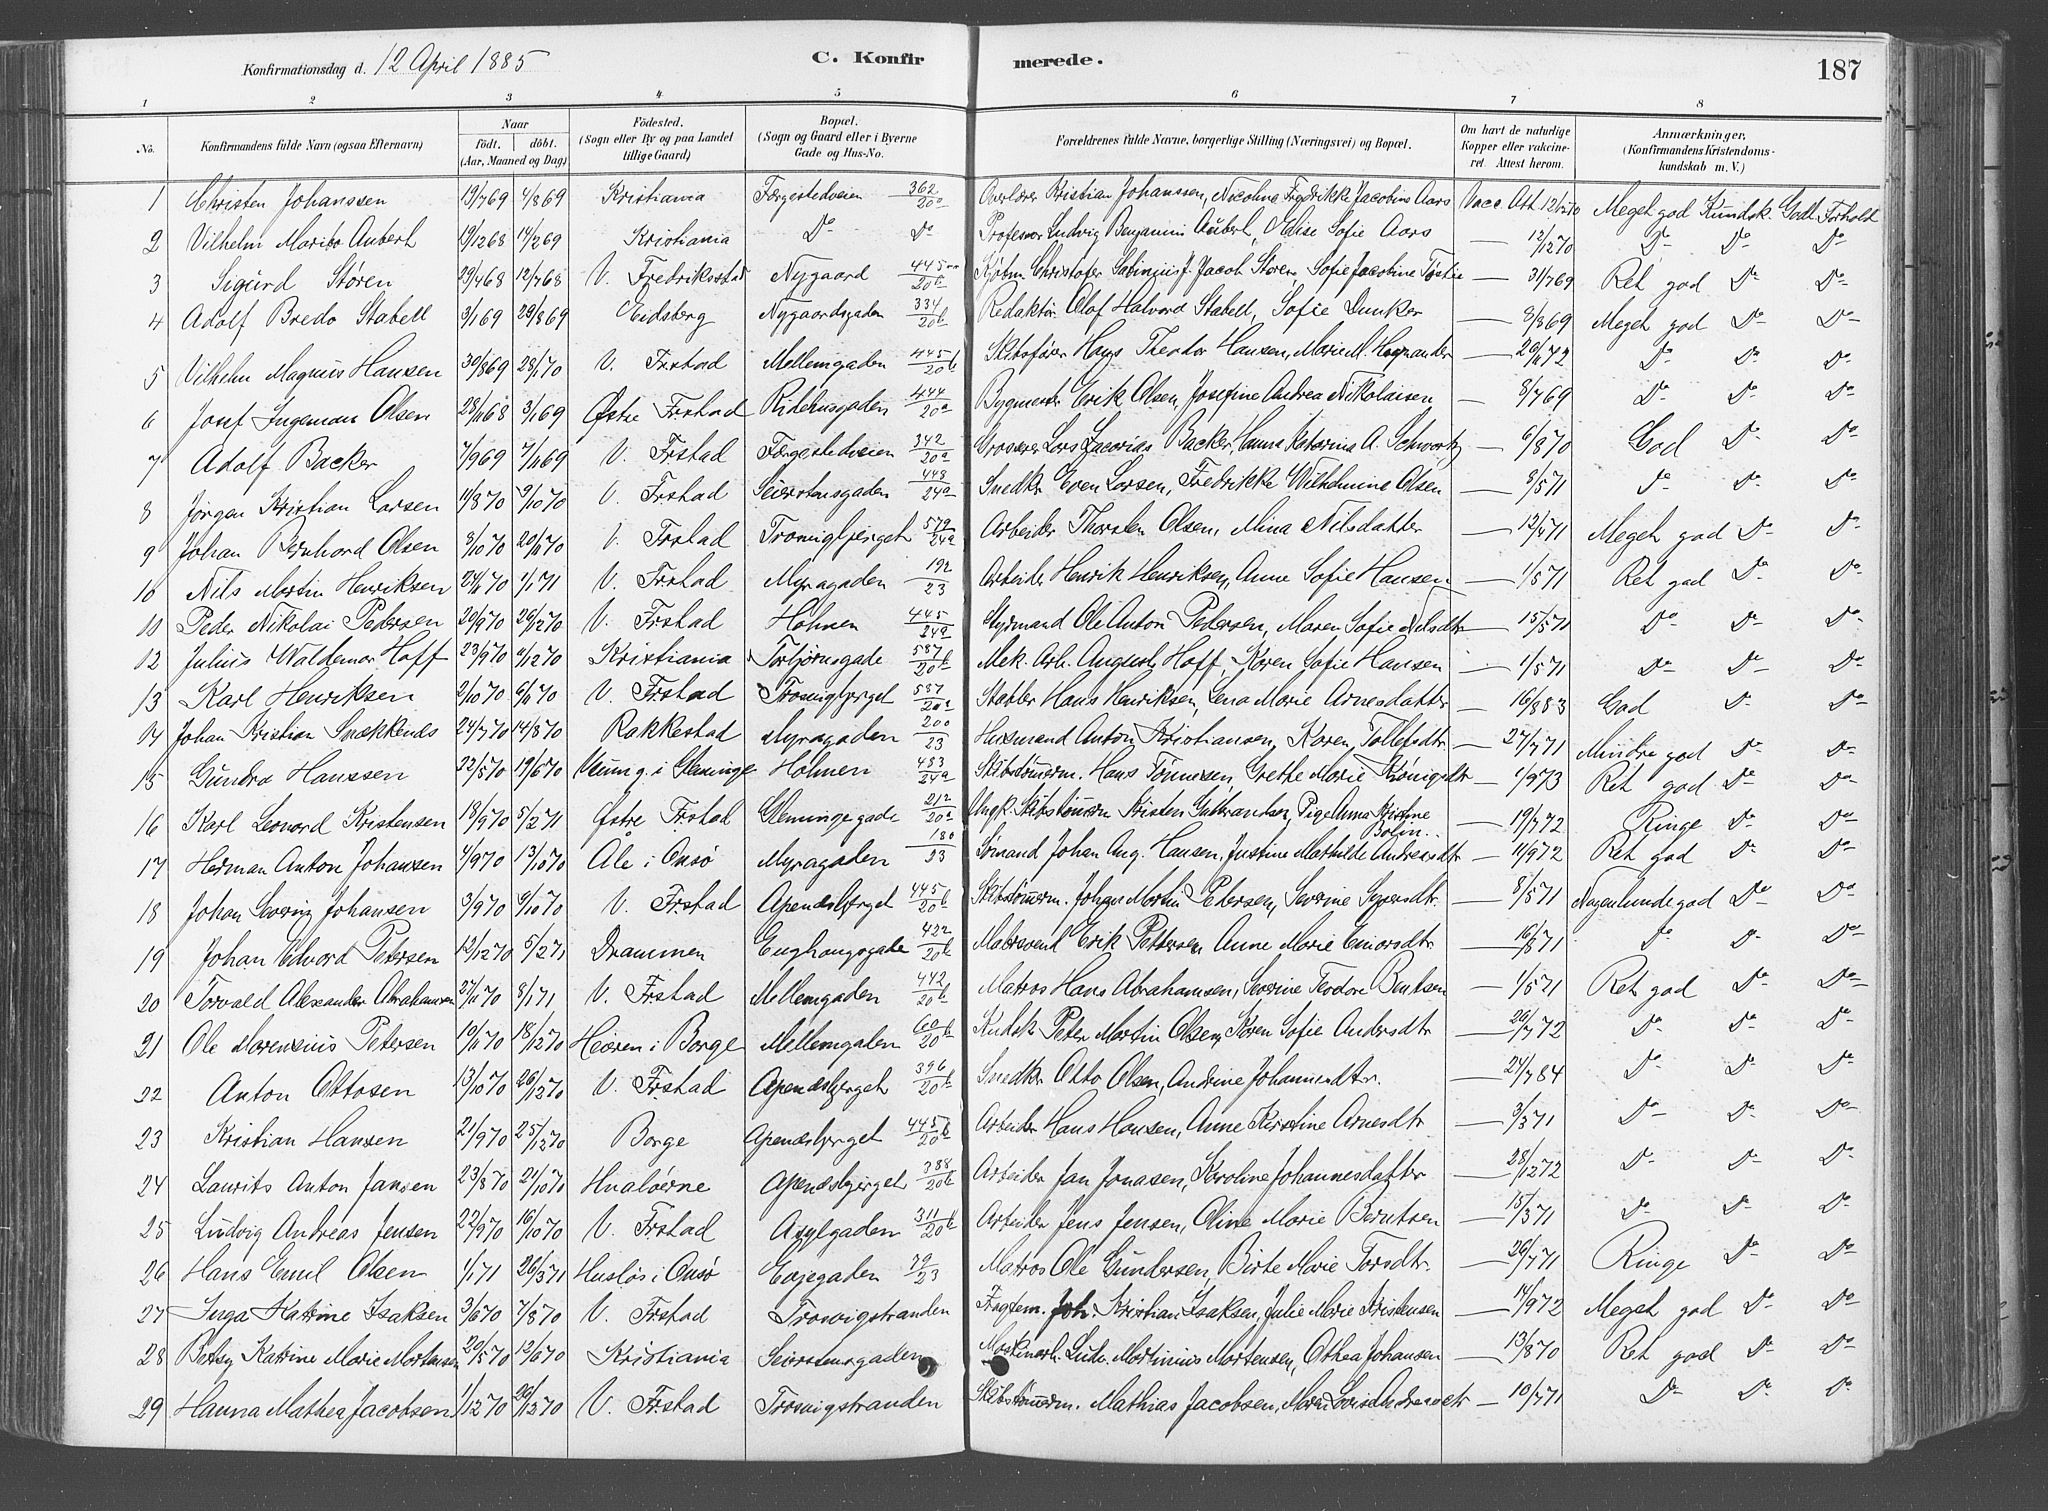 Konfirmationsdag d. 12 April 1885 C. Konfirmerede. 187
1 2 3 4 5 6 7 8
No. Konfirmandens fulde Navn (ogsaa Efternavn) Naar födt. döbt. (Aar, Maaned og Dag) Födested. (Sogn eller By og paa Landet tillige Gaard) Bopæl. (Sogn og Gaard eller i Byerne Gade og Hus-No. Forældrenes fulde Navne, borgerlige Stilling (Næringsvei) og Bopæl. Om havt de naturlige Kopper eller vakcineret. Attest herom. Anmærkninger. (Konfirmandens Kristendomskundskab m. V.)
1 Christen Johanssen 19/7 69 4/8 69 Kristiania Færgestedveien 362/20a Overlærer Kristian Johanssen, Nicolina Fredrikke Jacobine Aars Vacc. Att. Meget god Kundsk. Godt Forhold
2 Vilhelm Aubert 19/12 68 14/2 69 Kristiania Do Do Professor Ludvig Benjamin Aubert, Sofie Aars — 12/12 70 Do Do Do
3 Sigurd Støren 29/4 68 12/7 68 V. Fredriksstad Nygaard Kjøbm. Christofer Jacob Støren, Sofie Jacobine — 31/7 69 Ret god Do Do
4 Adolf Bredo Stabell 3/1 69 29/8 69 Eidsberg Nygaardsgaden 334/20b Redaktør Olaf Halvord Stabell, Sofie Dunker — 8/8 69 Meget god Do Do
5 Vilhelm Magnus Hansen 30/8 69 28/1 70 V. Frstad Mellemgaden 445/20b Skibsfører Hans Theodor Hansen, Marie M. — Do Do Do
6 Josef Ingeman Olsen 28/11 68 3/1 69 Østre Frstad Ridehusgaden 444/20a Bygmester Erik Olsen, Josefine Andrea Nikolaisen — 8/7 69 Do Do Do
7 Adolf Backer 7/9 69 7/11 69 V. Frstad Færgestedveien 342/20a Grosserer Lars Zacarias Backer, Hanna Katarina A. Schwartz — 6/8 70 God Do Do
8 Jørgen Kristian Larsen 11/8 70 9/10 70 V. Frstad Seierstensgaden 448/24a Snedker Even Larsen, Fredrikke Wilhelmine Olsen — 8/5 71 Do Do Do
9 Johan Bernhard Olsen 8/10 70 20/11 70 V. Frstad Trosvigbjerget 579/24a Arbeider Thorsten Olsen, Mina Nilsdatter — 12/4 71 Meget god Do Do
10 Nils Martin Henriksen 24/11 70 1/1 71 V. Frstad Myragaden 192/23 Arbeider Henrik Henriksen, Anne Sofie Hansen — 1/5 71 Ret god Do Do
11 Peder Nikolai Pedersen 20/9 70 26/12 70 V. Frstad Holmen 445/24a Styrmand Ole Anton Pedersen, Maren Sofie Nilsdtr — 15/5 71 Do Do Do
12 Julius Waldemar Hoff 23/9 70 Kristiania Torbjørnsgade 587/20b Mek. Arb. August Hoff, Karen Sofie Hansen — 1/5 71 Do Do Do
13 Karl Henriksen 2/10 70 6/11 70 V. Frstad Trosvigbjerget 587/20a Hans Henriksen, Lena Marie Arnesdatter — 16/8 83 God Do Do
14 Johan Kristian Snækkenes 24/7 70 14/8 70 Rakkestad Myragaden 200/23 Husmand Anton Kristiansen, Karen Tollefsdtr — 27/7 71 Mindre god Do Do
15 Gundro Hanssen 22/5 70 19/6 70 i Glemminge Holmen 483/24a Skibstømerm. Hans Tønnesen, Grethe Marie — 1/9 73 Ret god Do Do
16 Karl Leonard Kristensen 18/9 70 5/2 71 Østre Frstad Glemmingegade 212/20a Ungk. Skibstømerm Kristen Guttormsen, Pige Anna Kristine Bolin — 19/7 72 Ringe Do Do
17 Herman Anton Johansen 4/9 70 13/10 70 Åle i Onsø Myragaden 180/23 Sømand Johan Aug. Hansen, Justine Mathilde Andreasdtr — 11/9 72 Ret god Do Do
18 Johan Severin Johansen 3/9 70 9/10 70 V. Frstad Apenæsbjerget 445/20b Skibstømerm. Johan Martin Petersen, Severine — 8/5 71 Nogenlunde god Do Do
19 Johan Edvard Petersen 12/12 70 5/2 71 Drammen Enghaugsgade 422/20b Erik Pettersen, Anne Marie Einarsdtr — 16/8 71 Do Do Do
20 Torvald Alexander Abrahamsen 27/11 70 8/1 71 V. Frstad Mellemgaden 442/20b Matros Hans Abrahamsen, Severine Teodore Bentsen — 1/5 71 Ret god Do Do
21 Ole Lorensius Petersen 10/11 70 18/12 70 i Borge Mellemgaden 60/20b Kudsk Peter Martin Olsen, Karen Sofie Andersdtr — 26/7 72 Do Do Do
22 Anton Ottosen 13/10 70 26/12 70 V. Frstad Apenæsbjerget 396/20b Snedker Otto Olsen, Andrine Johannesdtr. — 24/7 84 Do Do Do
23 Kristian Hansen 21/9 70 25/12 70 Borge Apenæsbjerget 445/20b Arbeider Hans Hansen, Anne Kirstine Arnesdtr — 3/5 71 Do Do Do
24 Laurits Anton Jansen 23/8 70 21/10 70 Hvaløerne Apenæsbjerget 388/20b Arbeider Jan Jonasen, Karoline Johannesdatter — 28/12 72 Do Do Do
25 Ludvig Andreas Jensen 22/9 70 16/10 70 V. Frstad Asylgaden 311/20b Arbeider Jens Jensen, Oline Marie Berntsen — 15/3 71 Do Do Do
26 Hans Emil Olsen 1/1 71 26/3 71 Husløs i Onsø Eviegaden 79/23 Matros Ole Gundersen, Birte Marie Torsdtr. — 26/7 71 Ringe Do Do
27 Inga Katrine Isaksen 3/6 70 7/8 70 V. Frstad Trosvigstranden Fragtem. Joh. Kristian Isaksen, Julie Marie Kristensen — 14/9 72 Meget god Do Do
28 Betsy Katrine Marie Mortensen 20/5 70 12/6 70 Kristiania Seierstensgaden Maskinarb. Ludv. Martinius Mortensen, Othea Johansen — 13/8 70 Ret god Do Do
29 Hanna Mathea Jacobsen 1/12 70 26/12 70 V. Frstad Trosvigstranden Skibstømerm. Mathias Jacobsen, Maren Lovise Andreasdtr — 10/7 71 Do Do Do